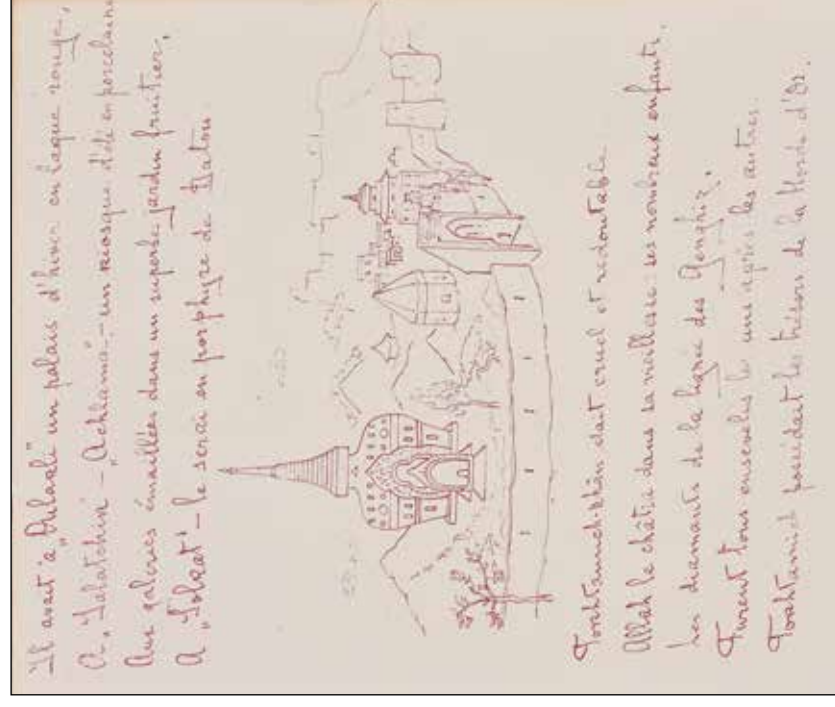 Il avait à „Dulagli" un palais d'hiver en laque rouge,
A „Salatchin" - „Achlama" - un kiosque d'été en porcelaine
Aux galeries émaillées dans un superbe jardin fruitier,
A „Solkat" - le seraï en porphyre de Datou.
Tochtamich-khân était cruel et redoutable
Allah le châtia dans sa vieillesse: ses nombreux enfants,
Les diamants de la lignée des Genghiz,
Furent tous ensevelis les uns après les autres.
Tochtamich possédait les trésors de la Horde d'Or.